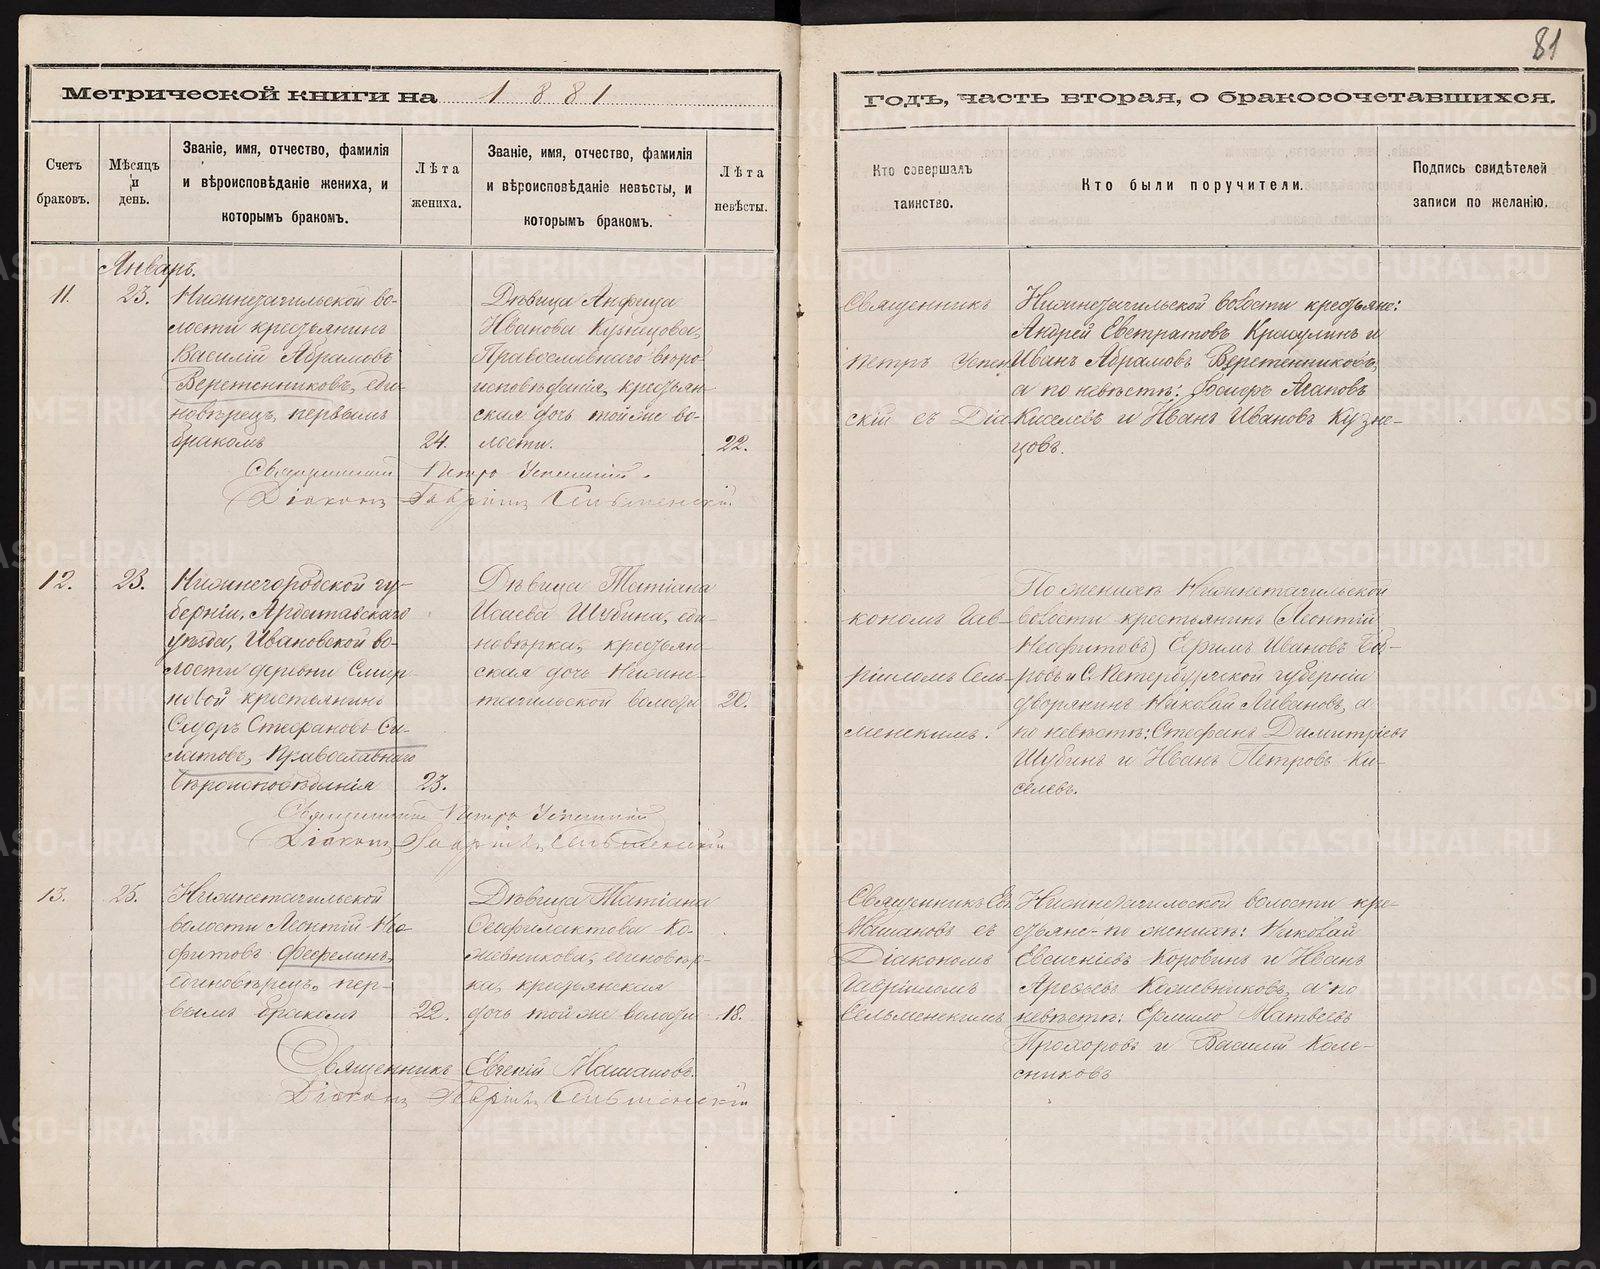 81
Метрической книги на 1881
годъ, часть вторая, о бракосочетавшихся.
Счетъ браковъ.
Мѣсяцъ и день.
Званіе, имя, отчество, фамилія
и вѣроисповѣданіе жениха, и
которымъ бракомъ.
Лѣта жениха.
Званіе, имя, отчество, фамилія
и вѣроисповѣданіе невѣсты, и
которымъ бракомъ.
Лѣта невѣсты.
Кто совершалъ
таинство.
Кто были поручители.
Подпись свидѣтелей
записи по желанію.
Январь.
11.
23.
Нижнетагильской во-
лости крестьянинъ
Василій Абрамовъ
Веретенниковъ, еди-
новѣрецъ, первымъ
бракомъ
24.
Дѣвица Анфиса
Иванова Кузнецова,
Православнаго вѣро-
исповѣданія, крестьян-
ская дочь той же во-
лости.
22.
Священникъ
Петръ Успен
скій съ Діа
Нижнетагильской волости крестьяне:
Андрей Евстратовъ и
Иванъ Абрамовъ Веретенниковъ,
а по невѣстѣ: Агаповъ
Киселевъ и Иванъ Ивановъ Кузне-
цовъ.
Священникъ Петръ Успенскій.
Діаконъ Гавріилъ Сельменскій
12.
23.
Нижнегородской гу-
берніи, Ардатовскаго
уѣзда, Ивановской во-
лости деревни Смир-
новой крестьянинъ
Сидоръ Стефановъ Си-
латовъ, Православнаго
вѣроисповѣданія
23.
Дѣвица Татіана
Исаева Шубина, еди-
новѣрка, крестьян-
ская дочь Нижне-
тагильской волости
20.
кономъ Гав-
ріиломъ Сель-
менскимъ.
По женихѣ Нижнетагильской
волости крестьянинъ (Леонтій
Неофитовъ) Ефимъ Ивановъ
и С. Петербургской губерніи
дворянинъ Николай Ливановъ, а
по невѣстѣ: Стефанъ Димитріевъ
Шубинъ и Иванъ Петровъ Ки-
селевъ.
Священникъ Петръ Успенскій
Діаконъ Гавріилъ Сельменскій
13.
25.
Нижнетагильской
волости Леонтій Нео-
фитовъ Феофелинъ,
единовѣрецъ, пер-
вымъ бракомъ
22.
Дѣвица Татіана
Феофилактова Ко-
жевникова, единовѣр-
ка, крестьянская
дочь той же волости
18.
Священникъ Ев.
Машановъ съ
Діакономъ
Гавріиломъ
Сельменскимъ
Нижнетагильской волости кре-
стьяне по женихѣ: Николай
Евсигніевъ Коровинъ и Иванъ
Кожевниковъ, а по
невѣстѣ: Ермилъ Матвѣевъ
Прохоровъ и Василій Коле-
сниковъ
Священникъ Евгеній Машановъ.
Діаконъ Гавріилъ Сельменскій
METRIKI.GASO-URAL.RU